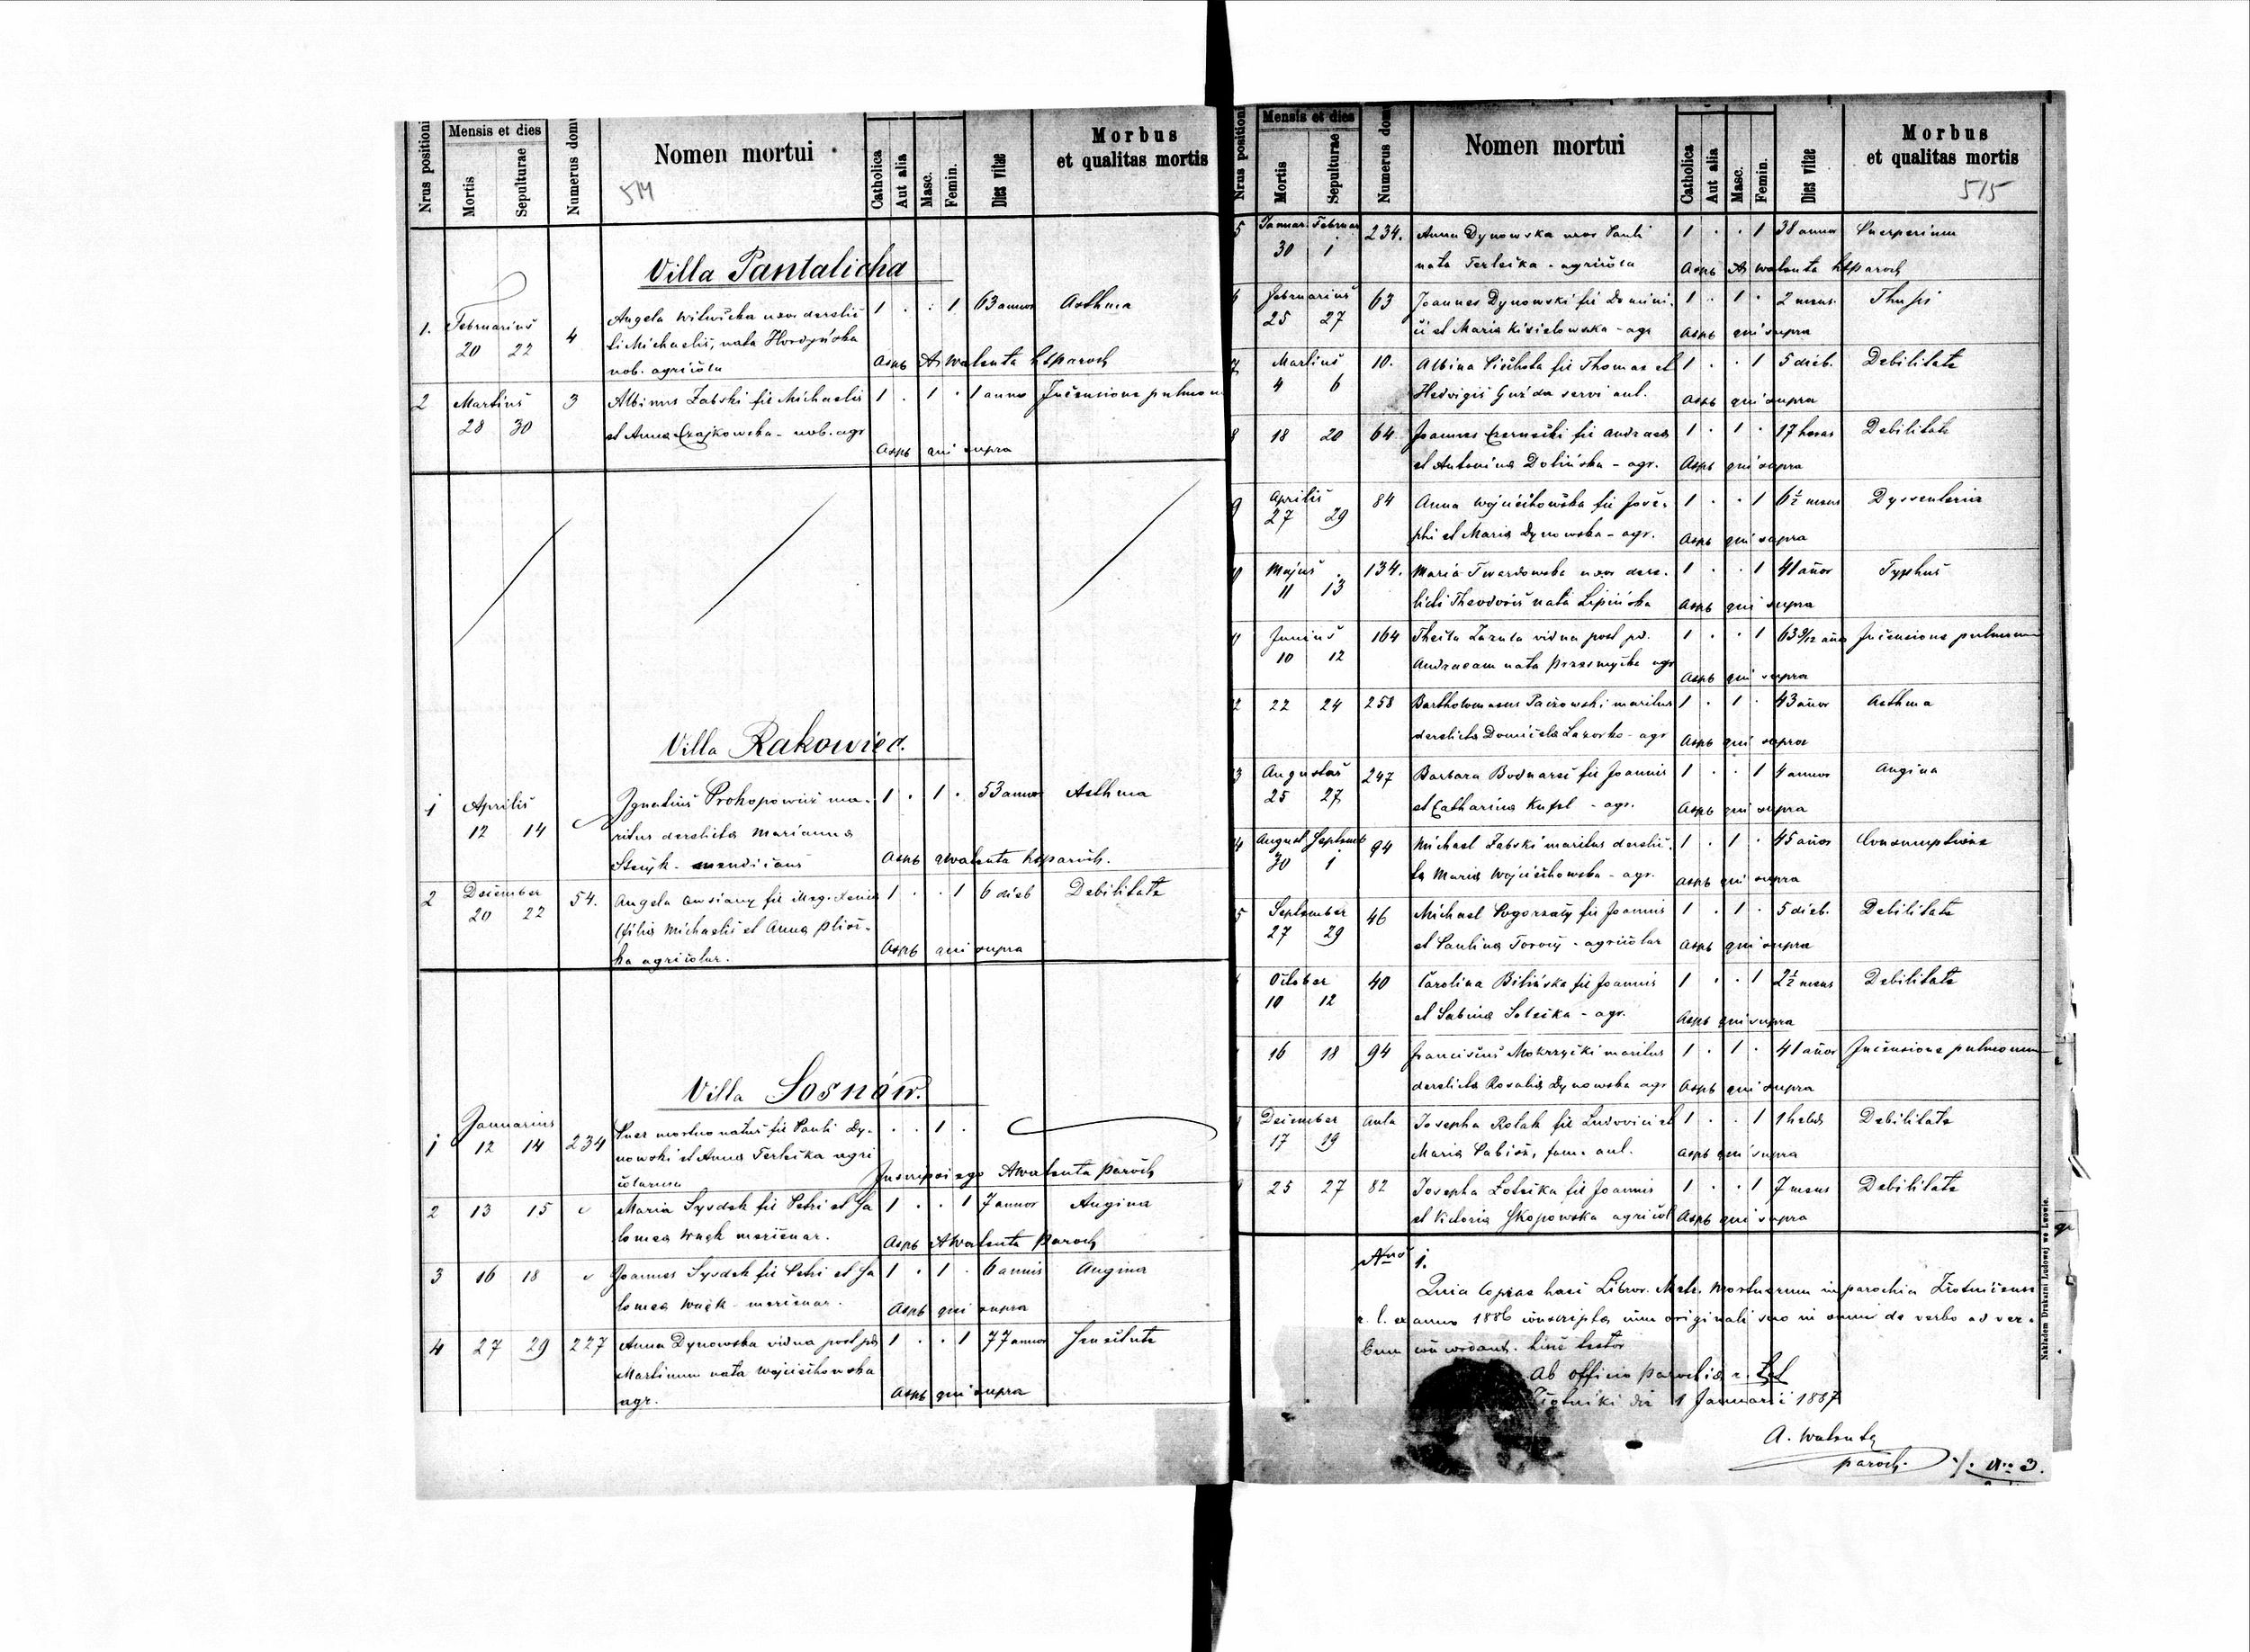 Nrus positioni
Mensis et dies
Mortis
Sepulturae
Numerus domu
Nomen mortui
514
Catholica
Aut alia
Masc.
Femin.
Dies vitae
Morbus
et qualitas mortis
Villa Pantalicha
1. Februarius 20 22 4
Angela Witwicka uxor derelic
ti Michaelis, nata Hordyńska
nob. agricola
1 . . 1 63 annor Asthma
Asps A Walenta ltsparoch
2 Martius 28 30 3
Albinus Zabski fil Michaelis
et Anna Czajkowska - nob. agr
1 . 1 . 1 anno Incensione pulmon
Asps qui supra
Villa Rakowiec.
1 Aprilis 12 14
Ignatius Prokopowicz ma-
ritus derelicta Marianna
mendicans
1 . 1 . 53 annor Asthma
Asps AWalenta ltsparoch.
2 December 20 22 54.
Angela fil
filia Michaelis et Anna
ka agricolar.
1 . . 1 6 dieb Debilitate
Asps qui supra
Villa Sosnów.
1 Januarius 12 14 234
Puer mortuo natus fil Pauli Dy-
nowski et Anna Terlecka agri
colarum
. . 1 .
Inscripsi ego AWalenta paroch
2 13 15
Maria Sysdek fil Petri et Sa
lomea Wnęk mercenar.
1 . . 1 7 annor Angina
Asps AWalenta paroch
3 16 18
Joannes Sysdek fil Petri et Sa
lomea Wnęk - mercenar.
1 . 1 . 6 annis Angina
Asps qui supra
4 27 29 227
Anna Dynowska vidua post pd
Martinum nata Wojciechowska
agr.
1 . . 1 77 annor Senectute
Asps qui supra
Nrus positioni
Mensis et dies
Mortis
Sepulturae
Numerus dom
Nomen mortui
Catholica
Aut alia
Masc.
Femin.
Dies vitae
Morbus
et qualitas mortis
515
5 Januar. Februar 30 1 234.
Anna Dynowska uxor Pauli
nata Terlecka - agricola
1 . . 1 38 annor Puerperium
Asps A Walenta ltsparoch
6 Februarius 25 27 63
Joannes Dynowski fil Domini-
ci et Maria Kisielowska - agr
1 . 1 . 2 mens.
Asps qui supra
7 Martius 4 6 10.
Albina Piechota fil Thomae et
Hedvigis Guzda servi aul.
1 . . 1 5 dieb. Debilitate
Asps qui supra
8 18 20 64
Joannes Czernecki fil Andreae
et Antonina Dolińska - agr.
1 . 1 . 17 horas Debilitate
Asps qui supra
9 Aprilis 27 29 84
Anna Wojciechowska fil Jose-
phi et Maria Dynowska - agr.
1 . . 1 6½ mens Dyssenteria
Asps qui supra
Majus 11 13 134.
Maria Twardowska uxor dere-
licti Theodoris nata Lipińska
1 . . 1 41 años Typhus
Asps qui supra
Junius 10 12 164
Thecla Zazula vidua post pd.
Andraeam nata Przesmycka agr
1 . . 1 63 9/12 año Incensione pulmonum
Asps qui supra
2 22 24 258
Bartholomaeus Paczowski maritus
derelicta Domicela Lazorko - agr
1 . 1 . 43 años Asthma
Asps qui supra
3 Augustus 25 27 247
Barbara Bodnarz fil Joannis
et Catharina - agr.
1 . . 1 4 annos Angina
Asps qui supra
4 August Septemb 30 1 94
Michael Zabski maritus derelic-
ta Maria Wojciechowska - agr.
1 . 1 . 45 años Consumptione
Asps qui supra
5 September 27 29 46
Michael Pogorzały fil Joannis
et Paulina - agricolar
1 . 1 . 5 dieb. Debilitate
Asps qui supra
October 10 12 40
Carolina Bilińska fil Joannis
et Sabina Solecka - agr.
1 . . 1 2½ mens Debilitate
Asps qui supra
16 18 94
Franciscus Mokrzycki maritus
derelicta Rosalia Dynowska agr
1 . 1 . 41 años Incensione pulmonum
Asps qui supra
December 17 19 Aula
Josepha Rolak fil Ludovici et
Maria fam. aul.
1 . . 1 Debilitate
Asps qui supra
25 27 82
Josepha Zolecka fil Joannis
et Victoria Skopowska agricol
1 . . 1 7 mens Debilitate
Asps qui supra
Nrus 1.
Quia Copiae haec Libror. Metr. Mortuorum in parochia Złotnicensi
r. l. ex anno 1886 conscripta, cum originali suo in omni de verbo ad ver-
bum concordant. hisce testor
Ab officio parochia r. l.
Złotniki die 1 Januarii 1887
A. Walenta
paroch.
Nakładem Drukarni Ludowej we Lwowie.